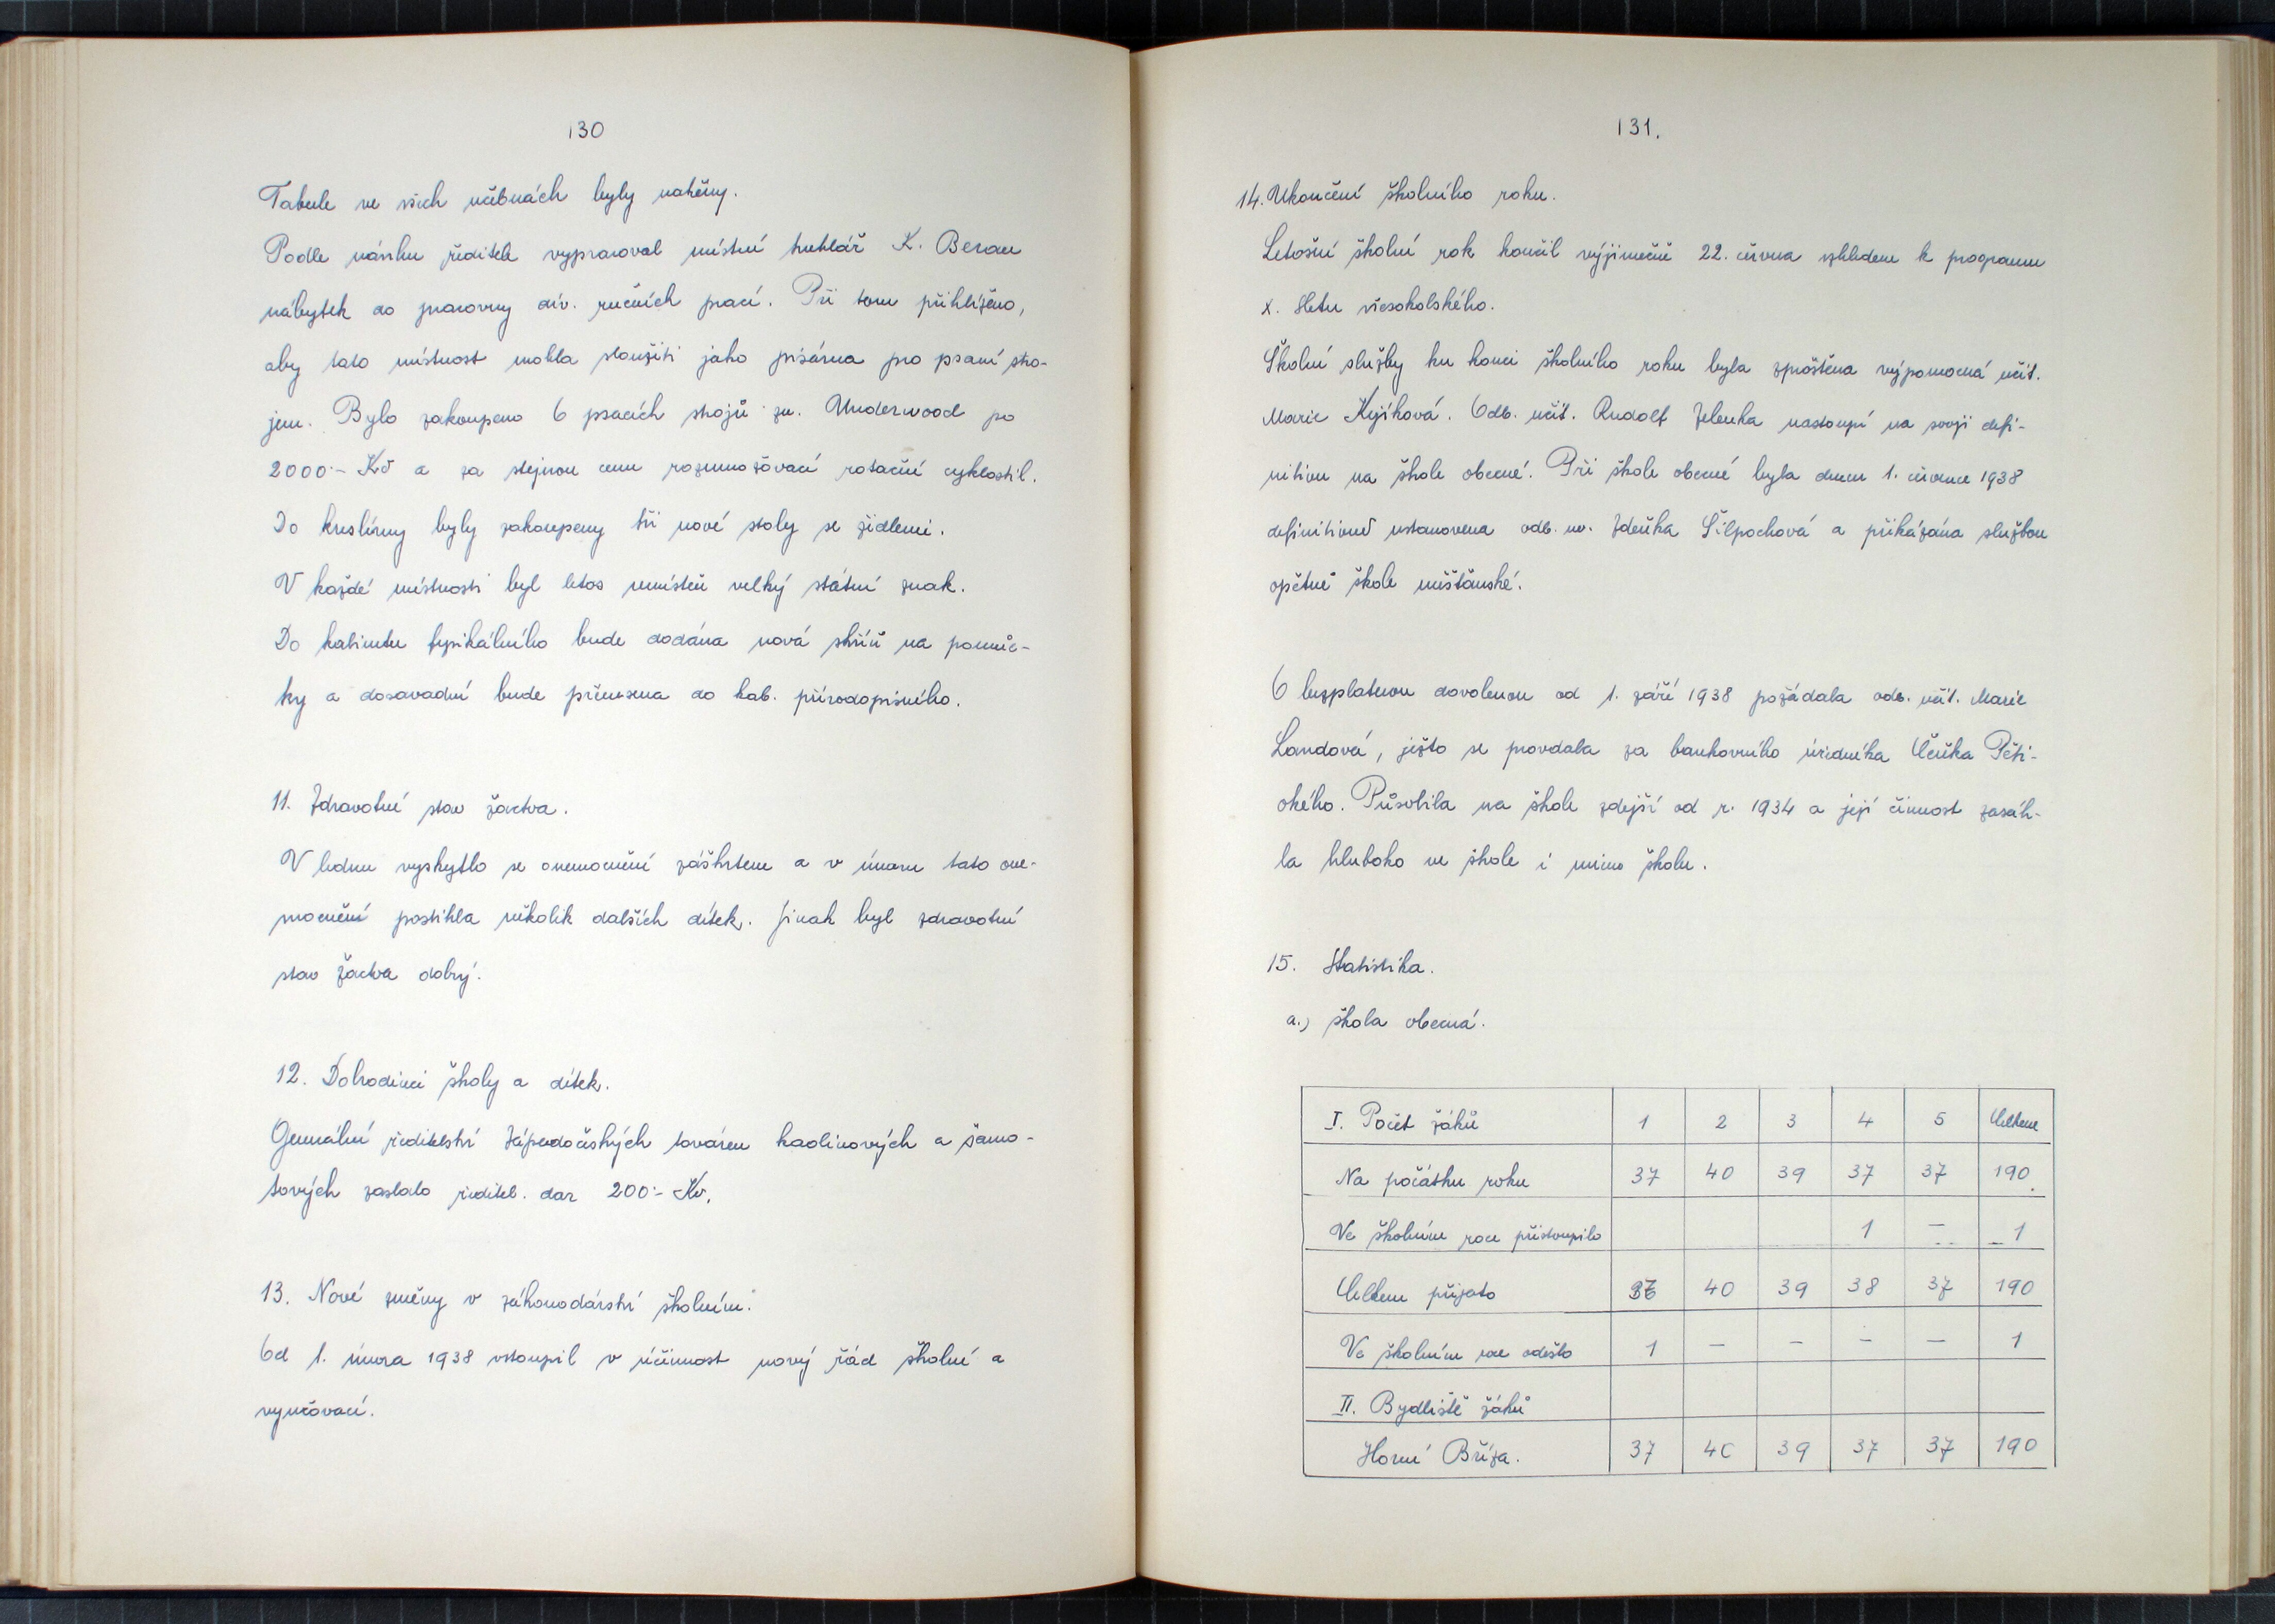 130
Tabule ve všech učebnách byly natřeny.
Podle návrhu ředitele vypracoval místní truhlář K. Beran
nábytek do pracovny dív. ručních prací. Při tom přihlíženo,
aby tato místnost mohla sloužiti jako písárna pro psaní stro-
jem. Bylo zakoupeno 6 psacích strojů zn. Underwood po
2000·- Kč a za stejnou cenu rozmnožovací rotační cyklostil.
Do kreslírny byly zakoupeny tři nové stoly se židlemi.
V každé místnosti byl letos umístěn velký státní znak.
Do kabinetu fysikálního bude dodána nová skříň na pomůc-
ky a dosavadní bude přenesena do kab. přírodopisného.
11. Zdravotní stav žactva.
V lednu vyskytlo se onemocnění záškrtem a v únoru tato one-
mocnění postihla několik dalších dítek. Jinak byl zdravotní
stav žactva dobrý.
12. Dobrodinci školy a dítek.
Generální ředitelství Západočeských továren kaolinových a šamo-
tových zaslalo ředitel. dar 200·- Kč.
13. Nové změny v zákonodárství školním.
Od 1. února 1938 vstoupil v účinnost nový řád školní a
vyučovací.
131.
14. Ukončení školního roku.
Letošní školní rok končil výjimečně 22. června vzhledem k programu
X. sletu všesokolského.
Školní služby ku konci školního roku byla zproštěna výpomocná učit.
Marie Kyjíková. Odb. učit. Rudolf Zelenka nastoupí na svoji defi-
nitivu na škole obecné. Při škole obecné byla dnem 1. července 1938
definitivně ustanovena odb. uč. Zdeňka Šilpochová a přikázána službou
opětně škole měšťanské.
O bezplatnou dovolenou od 1. září 1938 požádala odb. učit. Marie
Landová, ježto se provdala za bankovního úředníka Čeňka Pěti-
okého. Působila na škole zdejší od r. 1934 a její činnost zasáh-
la hluboko ve škole i mimo školu.
15. Statistika.
a.) škola obecná.
I. Počet žáků 1 2 3 4 5 Celkem
Na počátku roku 37 40 39 37 37 190.
Ve školním roce přistoupilo 1 — 1
Celkem přijato 36 40 39 38 37 190
Ve školním roce odešlo 1 — — — — 1
II. Bydliště žáků
Horní Bříza. 37 40 39 37 37 190